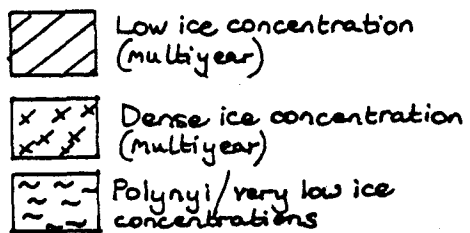 Low ice concentration
(multiyear)
Dense ice concentration
(multiyear)
Polynyi/very low ice
concentrations